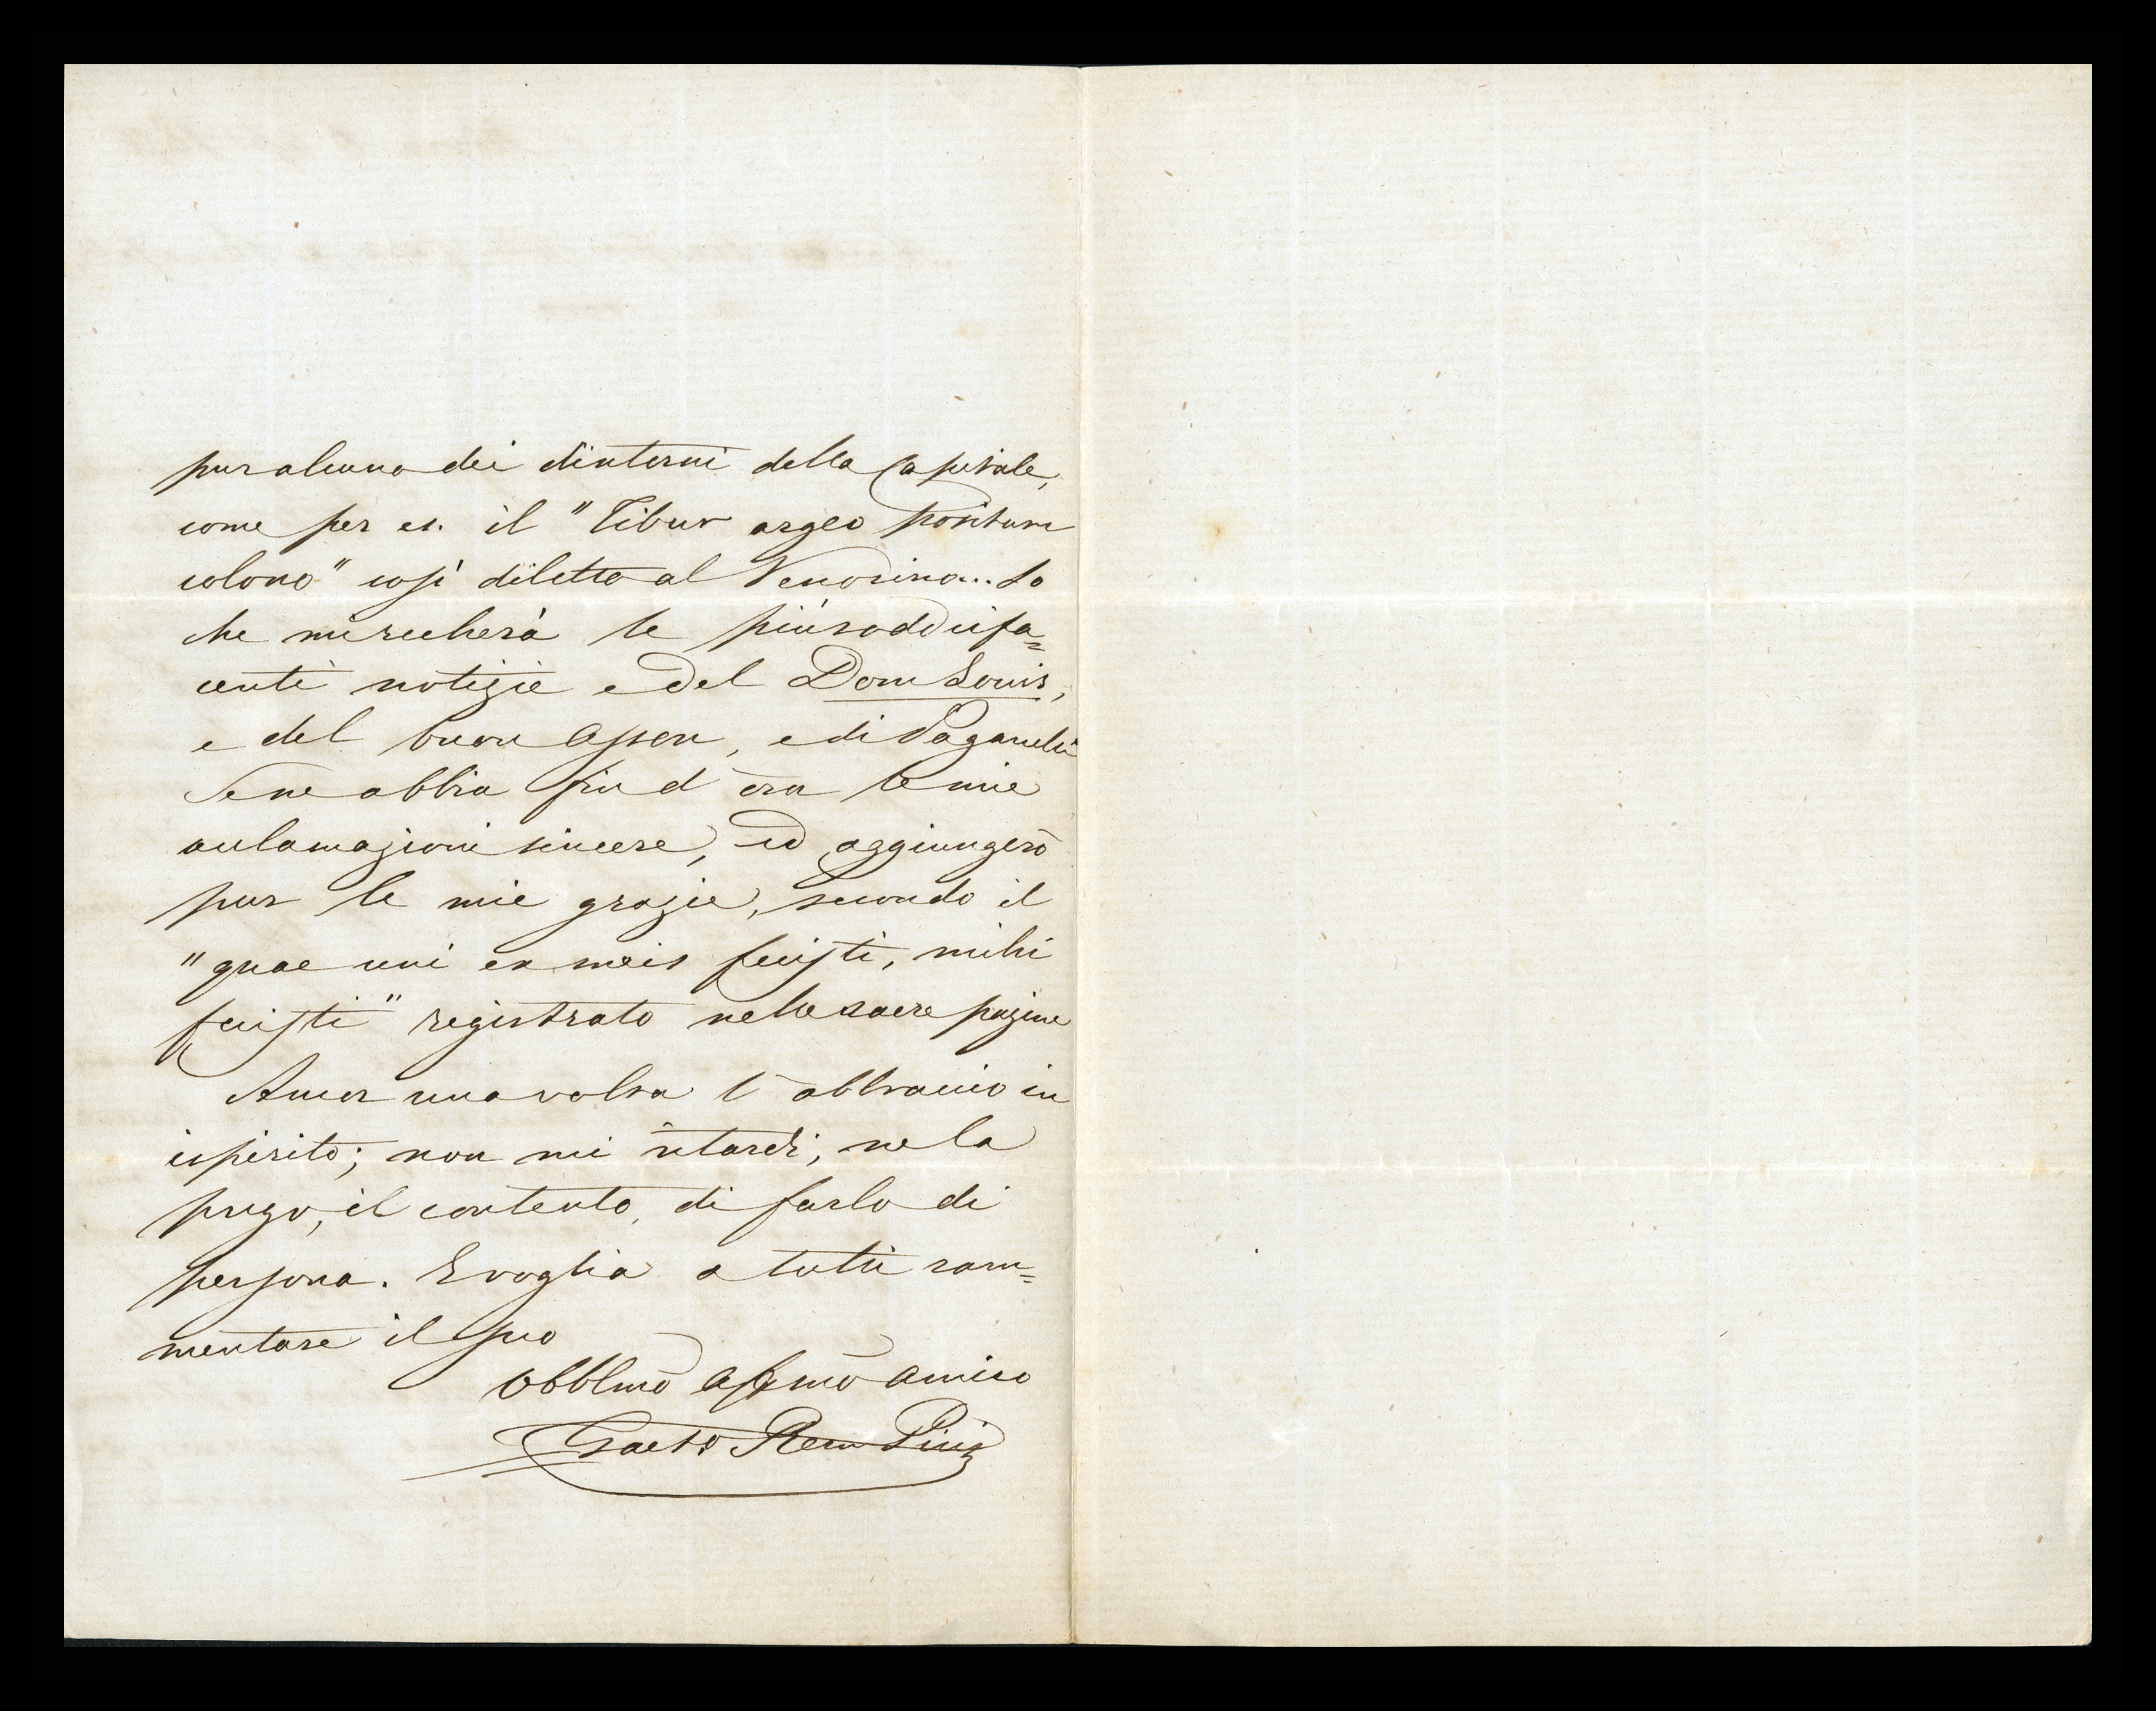 pur alcuno dei dintorni della Capitale,
come per es. il "Tibur argeo positum
colono" così diletto al Venosino... So
che mi recherà le più soddisfa=
centi notizie e del Dom Louis,
e del buon , e di
Se ne abbia fin d'ora le mie
acclamazioni sincere, ed aggiungerò
pur le mie grazie, secondo il
"quae uni ex meis fecisti, mihi
fecisti" registrato nelle sacre pagine
Ancor una volta l'abbraccio in
ispirito; non mi ritardi, ne la
prego, il contento, di farlo di
persona. E voglia a tutti ram=
mentare il suo
Obblmo affmo amico
Gaeto